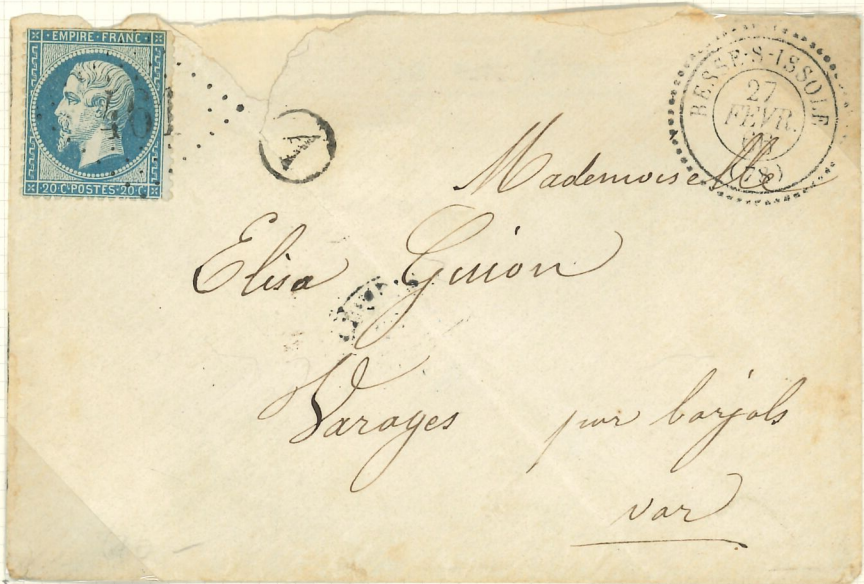 EMPIRE FRANC
20 C POSTES 20 C
A
BESSE-S-ISSOLE
27
FEVR.
(78)
Mademoiselle
Elisa Guion
Varages par barjols
var